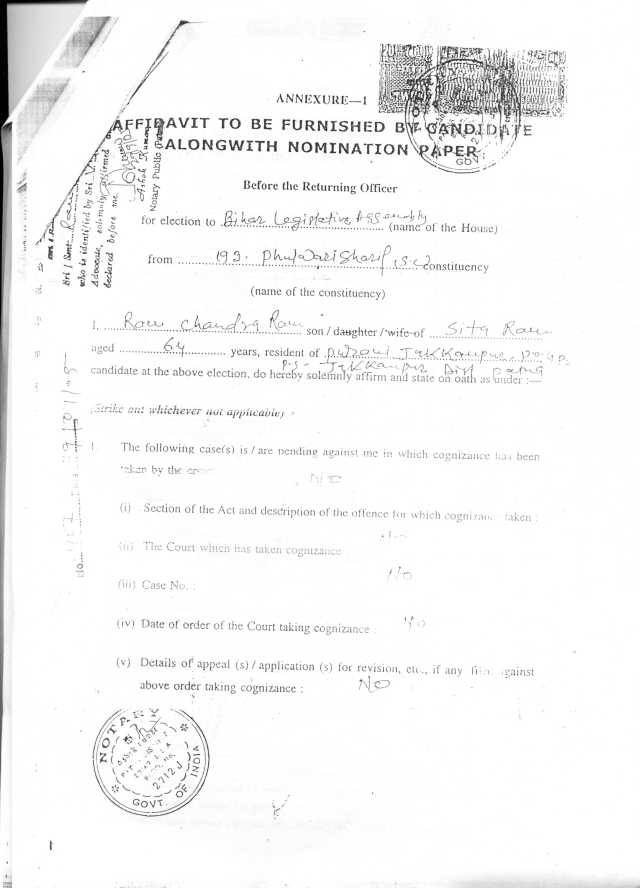 ANNEXURE—I
AFFIDAVIT TO BE FURNISHED BY CANDIDATE
ALONGWITH NOMINATION PAPER
Before the Returning Officer
for election to Bihar Legislative Assembly (name of the House)
from 193. Phulwari Sharif (S.C) constituency
(name of the constituency)
I. Ram Chandra Ram son / daughter / wife of Sita Ram
aged 64 years, resident of Purani Jakkanpur
P.S- Jakkanpur Dist Patna
candidate at the above election, do hereby solemnly affirm and state on oath as under :—
(Strike out whichever not applicable)
1. The following case(s) is / are pending against me in which cognizance has been
taken by the
No
(i) Section of the Act and description of the offence for which cognizance taken :
(ii) The Court which has taken cognizance
No
(iii) Case No. :
(iv) Date of order of the Court taking cognizance : No
(v) Details of appeal (s) / application (s) for revision, etc., if any filed against
above order taking cognizance : No
Sri / Smt. Ram
who is identified by Sri
Advocate, solemnly affirmed
declared before me
Ashok Kumar
Notary Public
No.
NOTARY
2712J
GOVT. OF INDIA
1